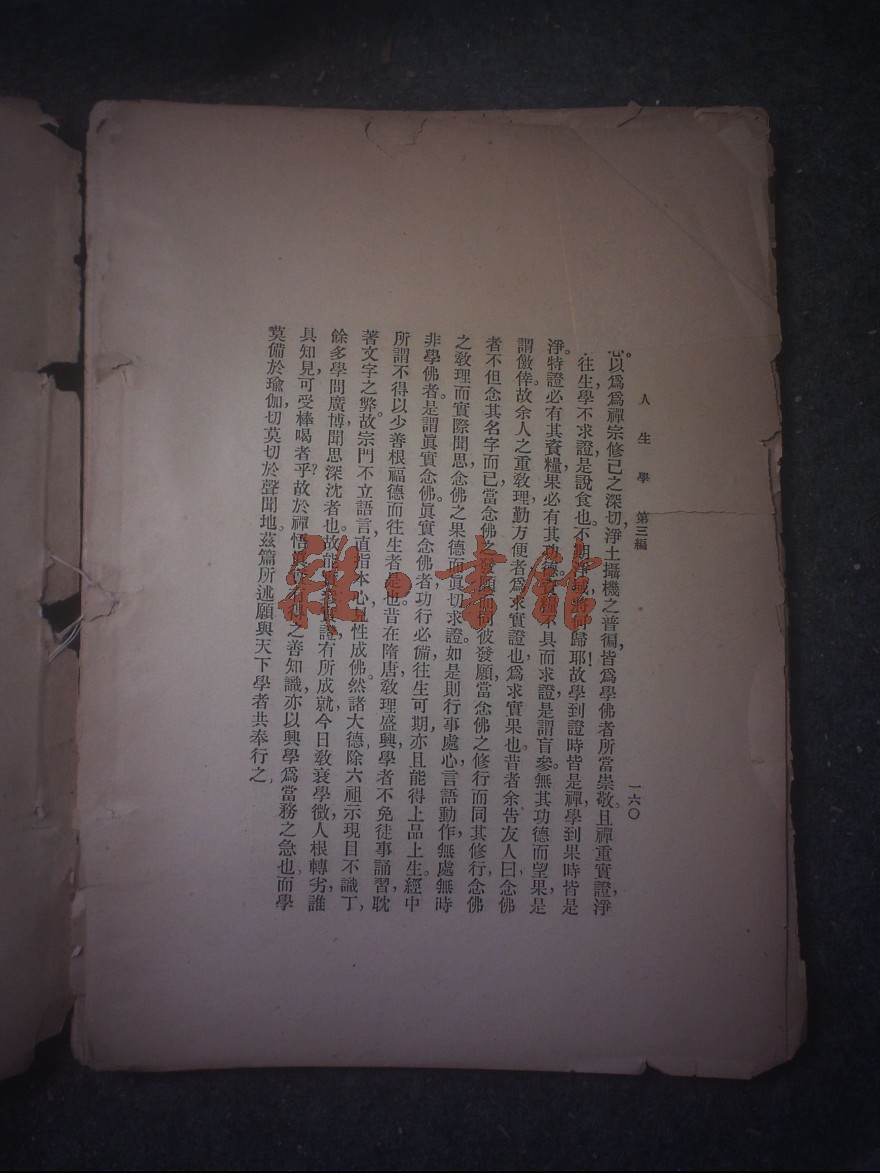 人生學 第三編
一六〇
以爲爲禪宗修已之深切淨土攝機之普徧皆爲學佛者所當崇敬。且禪重實證淨
往生學不求證是說食也。不期 將何歸耶!故學到證時皆是禪學到果時皆是
淨。特證必有其資糧果必有其功德 不具而求證是謂盲參。無其功德而望果是
謂儌倖。故余人之重敎理勤方便者爲求實證也爲求實果也。昔者余告友人曰念佛
者不但念其名字而已當念佛之發願而同彼發願當念佛之修行而同其修行念佛
之敎理而實際聞思念佛之果德而眞切求證。如是則行事處心言語動作無處無時
非學佛者。是謂眞實念佛。眞實念佛者功行必備往生可期亦且能得上品上生。經中
所謂不得以少善根福德而往生者是也。昔在隋唐敎理盛興學者不免徒事誦習耽
著文字之弊。故宗門不立語言直指本心見性成佛。然諸大德除六祖示現目不識丁,
餘多學問廣博聞思深沈者也。故能 有所成就今日敎衰學微人根轉劣誰
具知見可受棒喝者乎?故於禪悟 之善知識亦以興學爲當務之急也而學
莫備於瑜伽切莫切於聲聞地。茲篇所述願與天下學者共奉行之
雜·書館